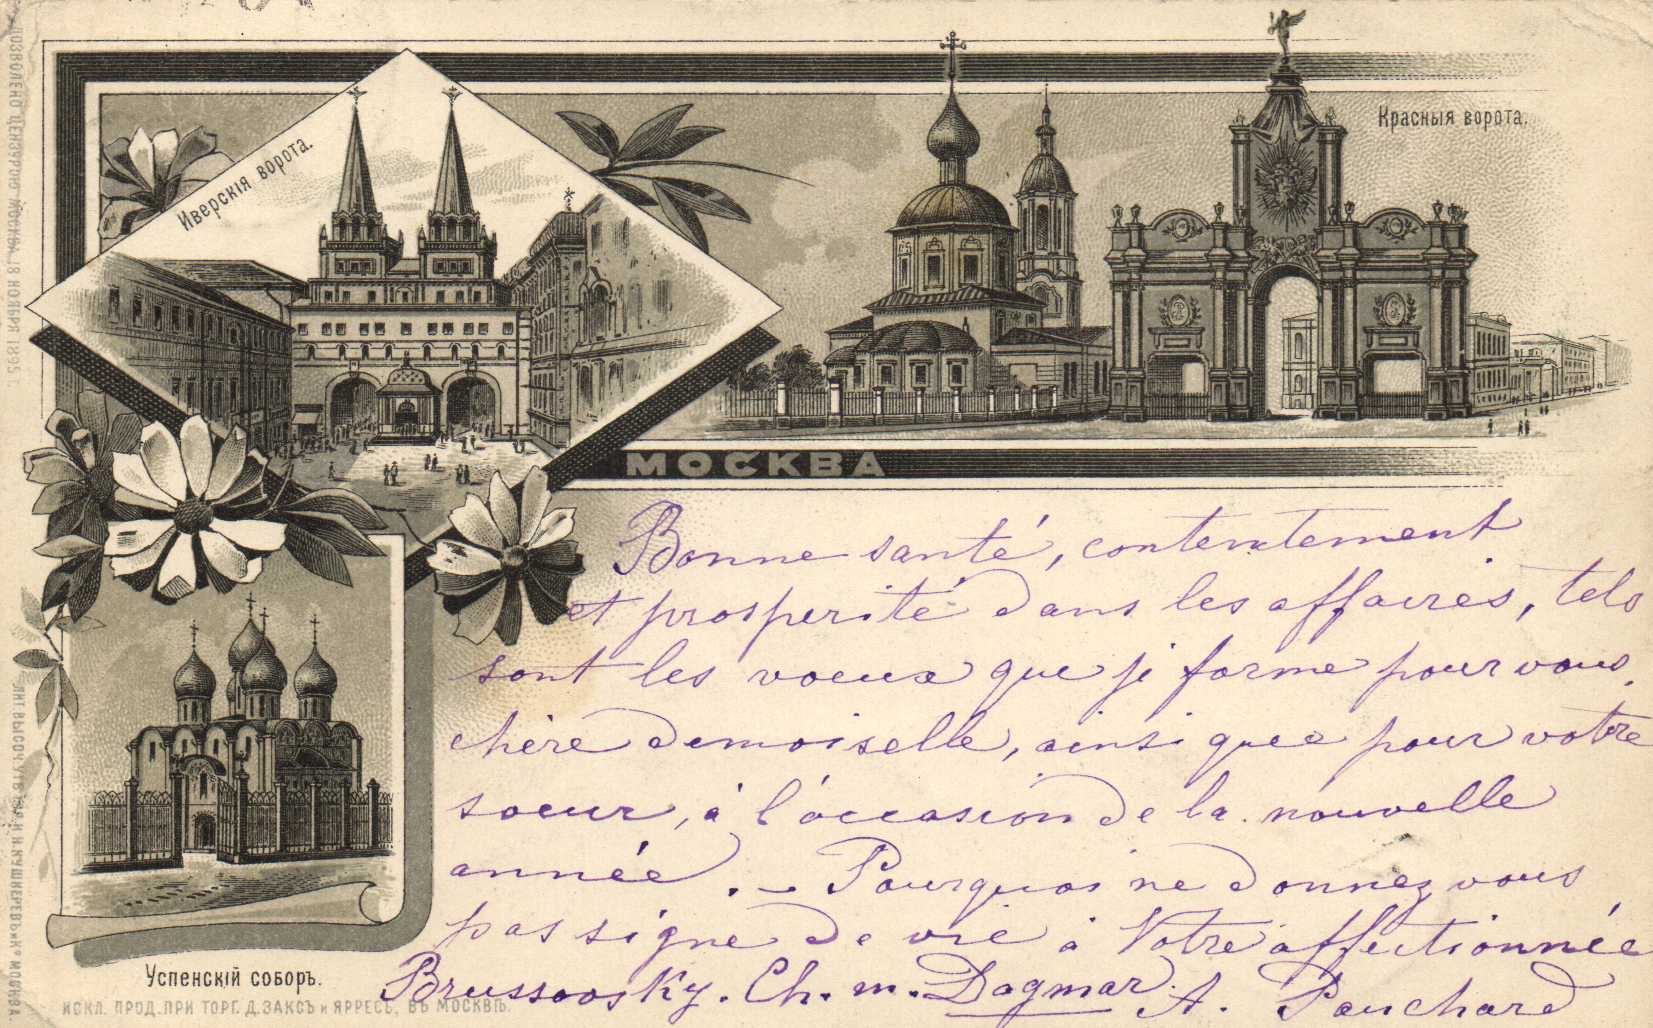 Иверскія ворота.
Красныя ворота.
МОСКВА
Успенскій соборъ.
Bonne santé, contentement
et prosperité dans les affaires, tels
sont les voeux que je forme pour vous,
chère demoiselle, ainsi que pour votre
soeur, à l'occasion de la nouvelle
année. — Pourquoi ne donnez vous
pas signe de vie à Votre affectionnée
Ch. m. Dagmar. A. Pouchard
ДОЗВОЛЕНО ЦЕНЗУРОЮ МОСКВА, 18 НОЯБРЯ 1895 г.
МОСКВА.
ИСКЛ. ПРОД. ПРИ ТОРГ. Д. ЗАКСЪ и ЯРРЕСЪ, ВЪ МОСКВѢ.